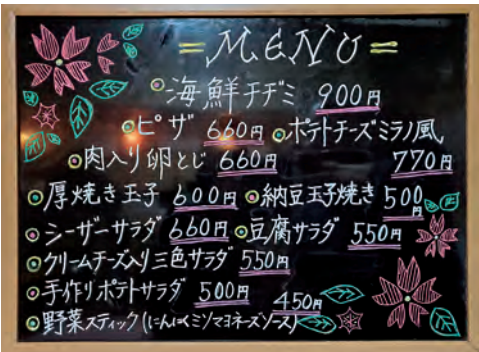 =MENU=
海鮮チヂミ 900円
ピザ 660円 ポテトチーズミラノ風 770円
肉入り卵とじ 660円
厚焼き玉子 600円 納豆玉子焼き 500円
シーザーサラダ 660円 豆腐サラダ 550円
クリームチーズ入り三色サラダ 550円
手作りポテトサラダ 500円
野菜スティック(にんにくミソマヨネーズソース) 450円